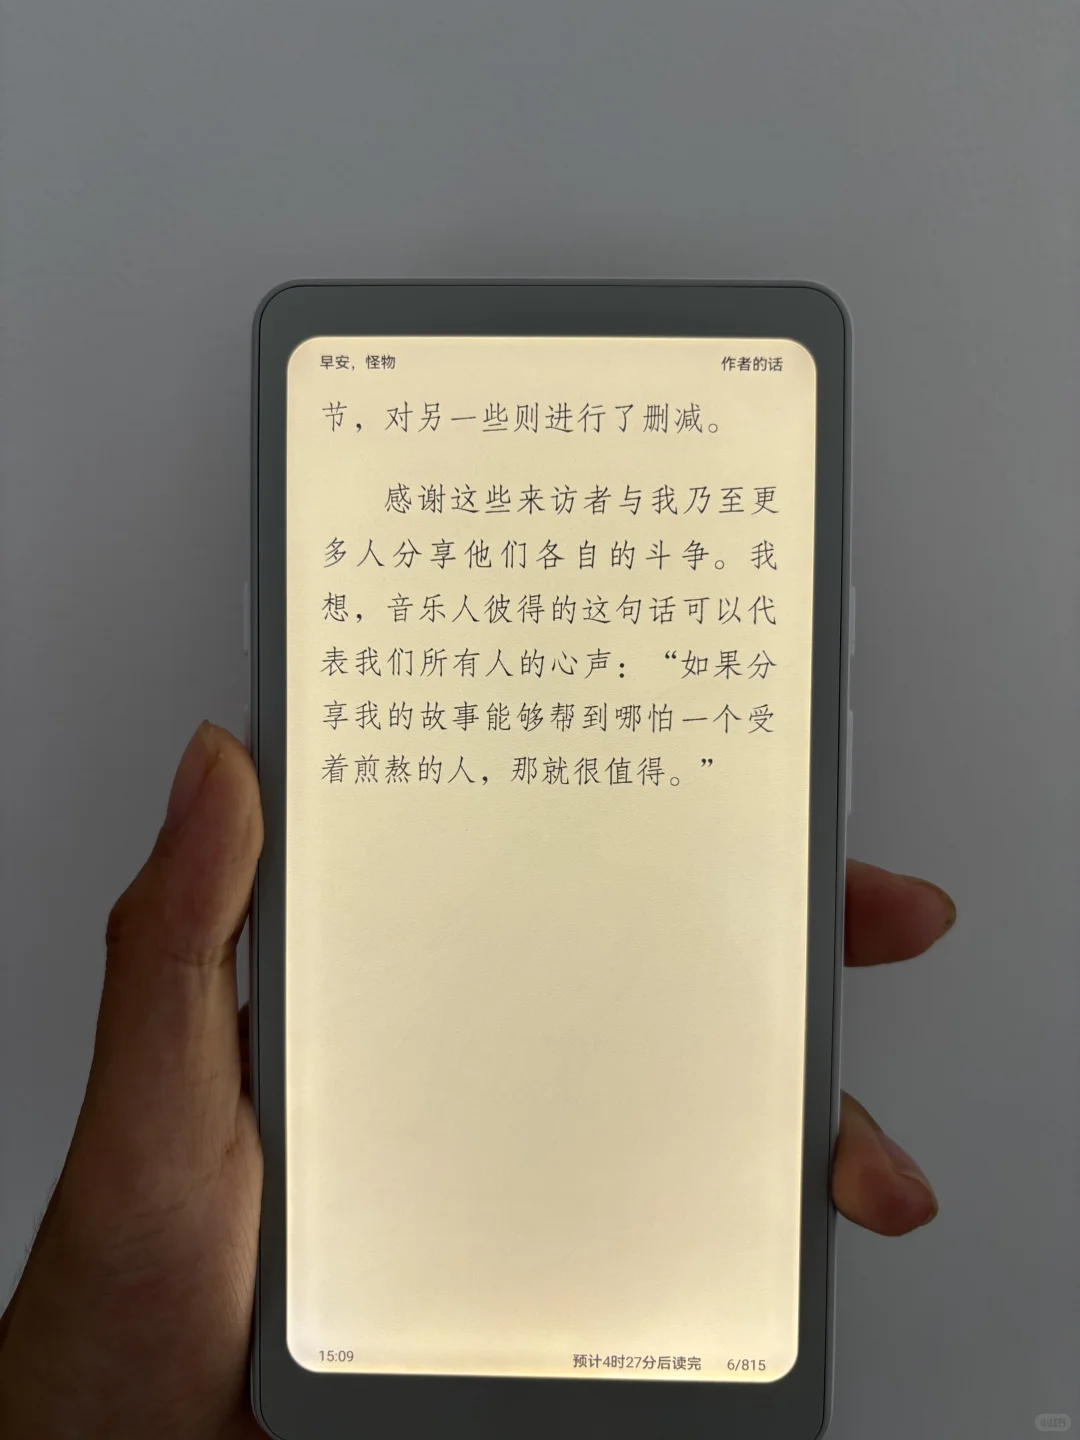 早安，怪物
作者的话
节，对另一些则进行了删减。
感谢这些来访者与我乃至更
多人分享他们各自的斗争。我
想，音乐人彼得的这句话可以代
表我们所有人的心声：“如果分
享我的故事能够帮到哪怕一个受
着煎熬的人，那就很值得。”
15:09
预计4时27分后读完
6/815